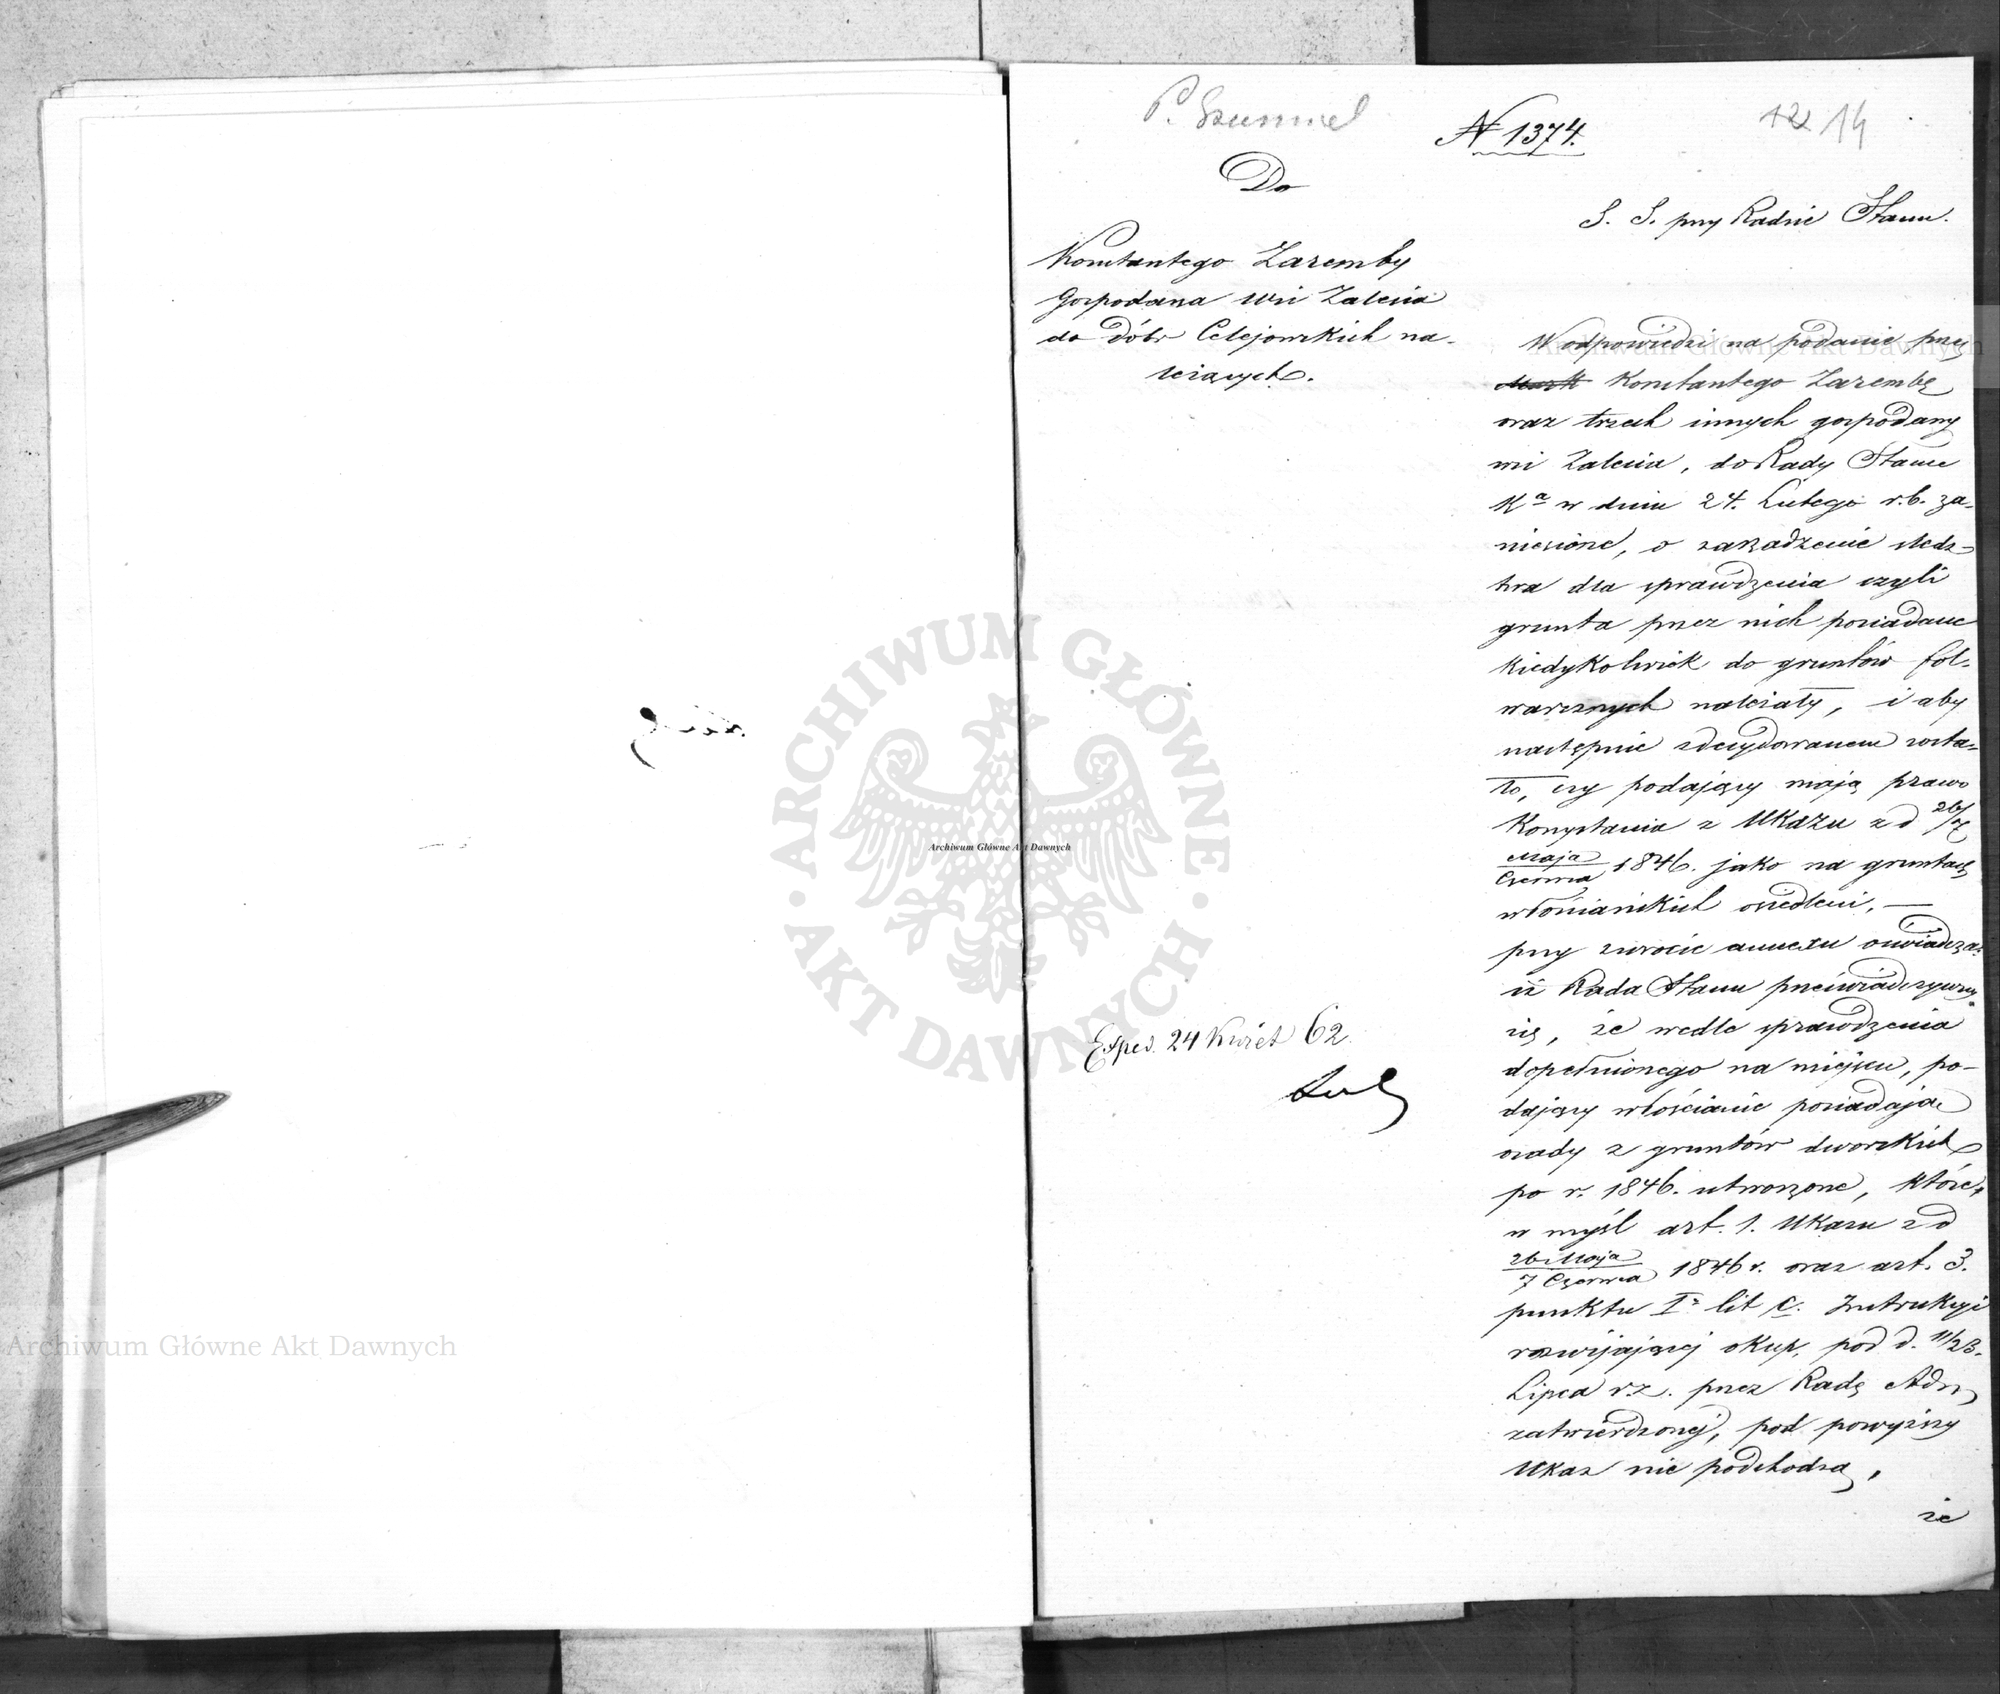 P. Szummel
N 1374.
12 14
Do
Konstantego Zaremby
Gospodarza wsi Zalesia
do dóbr Celejowskich na-
leżących.
S. S. przy Radzie Stanu.
W odpowiedzi na podanie, przez
Konstantego Zarembę
oraz trzech innych gospodarzy
wsi Zalesia, do Rady Stanu
Ka w dniu 24. Lutego r.b. za-
niesione, o zarządzenie śledz-
twa dla sprawdzenia czyli
grunta przez nich posiadane
kiedykolwiek do gruntów fol-
warcznych należały, i aby
następnie zdecydowanem zosta-
ło, czy podający mają prawo
Korzystania z Ukazu z d 26/7
Maja/Czerwca 1846. jako na gruntach
włościańskich osiedleni. —
przy zwrocie annexu oświadcza,
iż Rada Stanu przeświadczywszy
się, że wedle sprawdzenia
dopełnionego na miejscu, po-
dający włościanie posiadają
osady z gruntów dworskich
po r. 1846. utworzone, które,
w myśl art. 1. Ukazu z d
26 Maja/7 Czerwca 1846 r. oraz art. 3.
punktu I lit c. Instrukcyi
rozwijającej okup, pod d. 11/23.
Lipca r.z. przez Radę Adm
zatwierdzonej, pod powyższy
Ukaz nie podchodzą,
że
Exped. 24 Kwiet 62.
Archiwum Główne Akt Dawnych
ARCHIWUM GŁÓWNE
AKT DAWNYCH
Archiwum Główne Akt Dawnych
Archiwum Główne Akt Dawnych